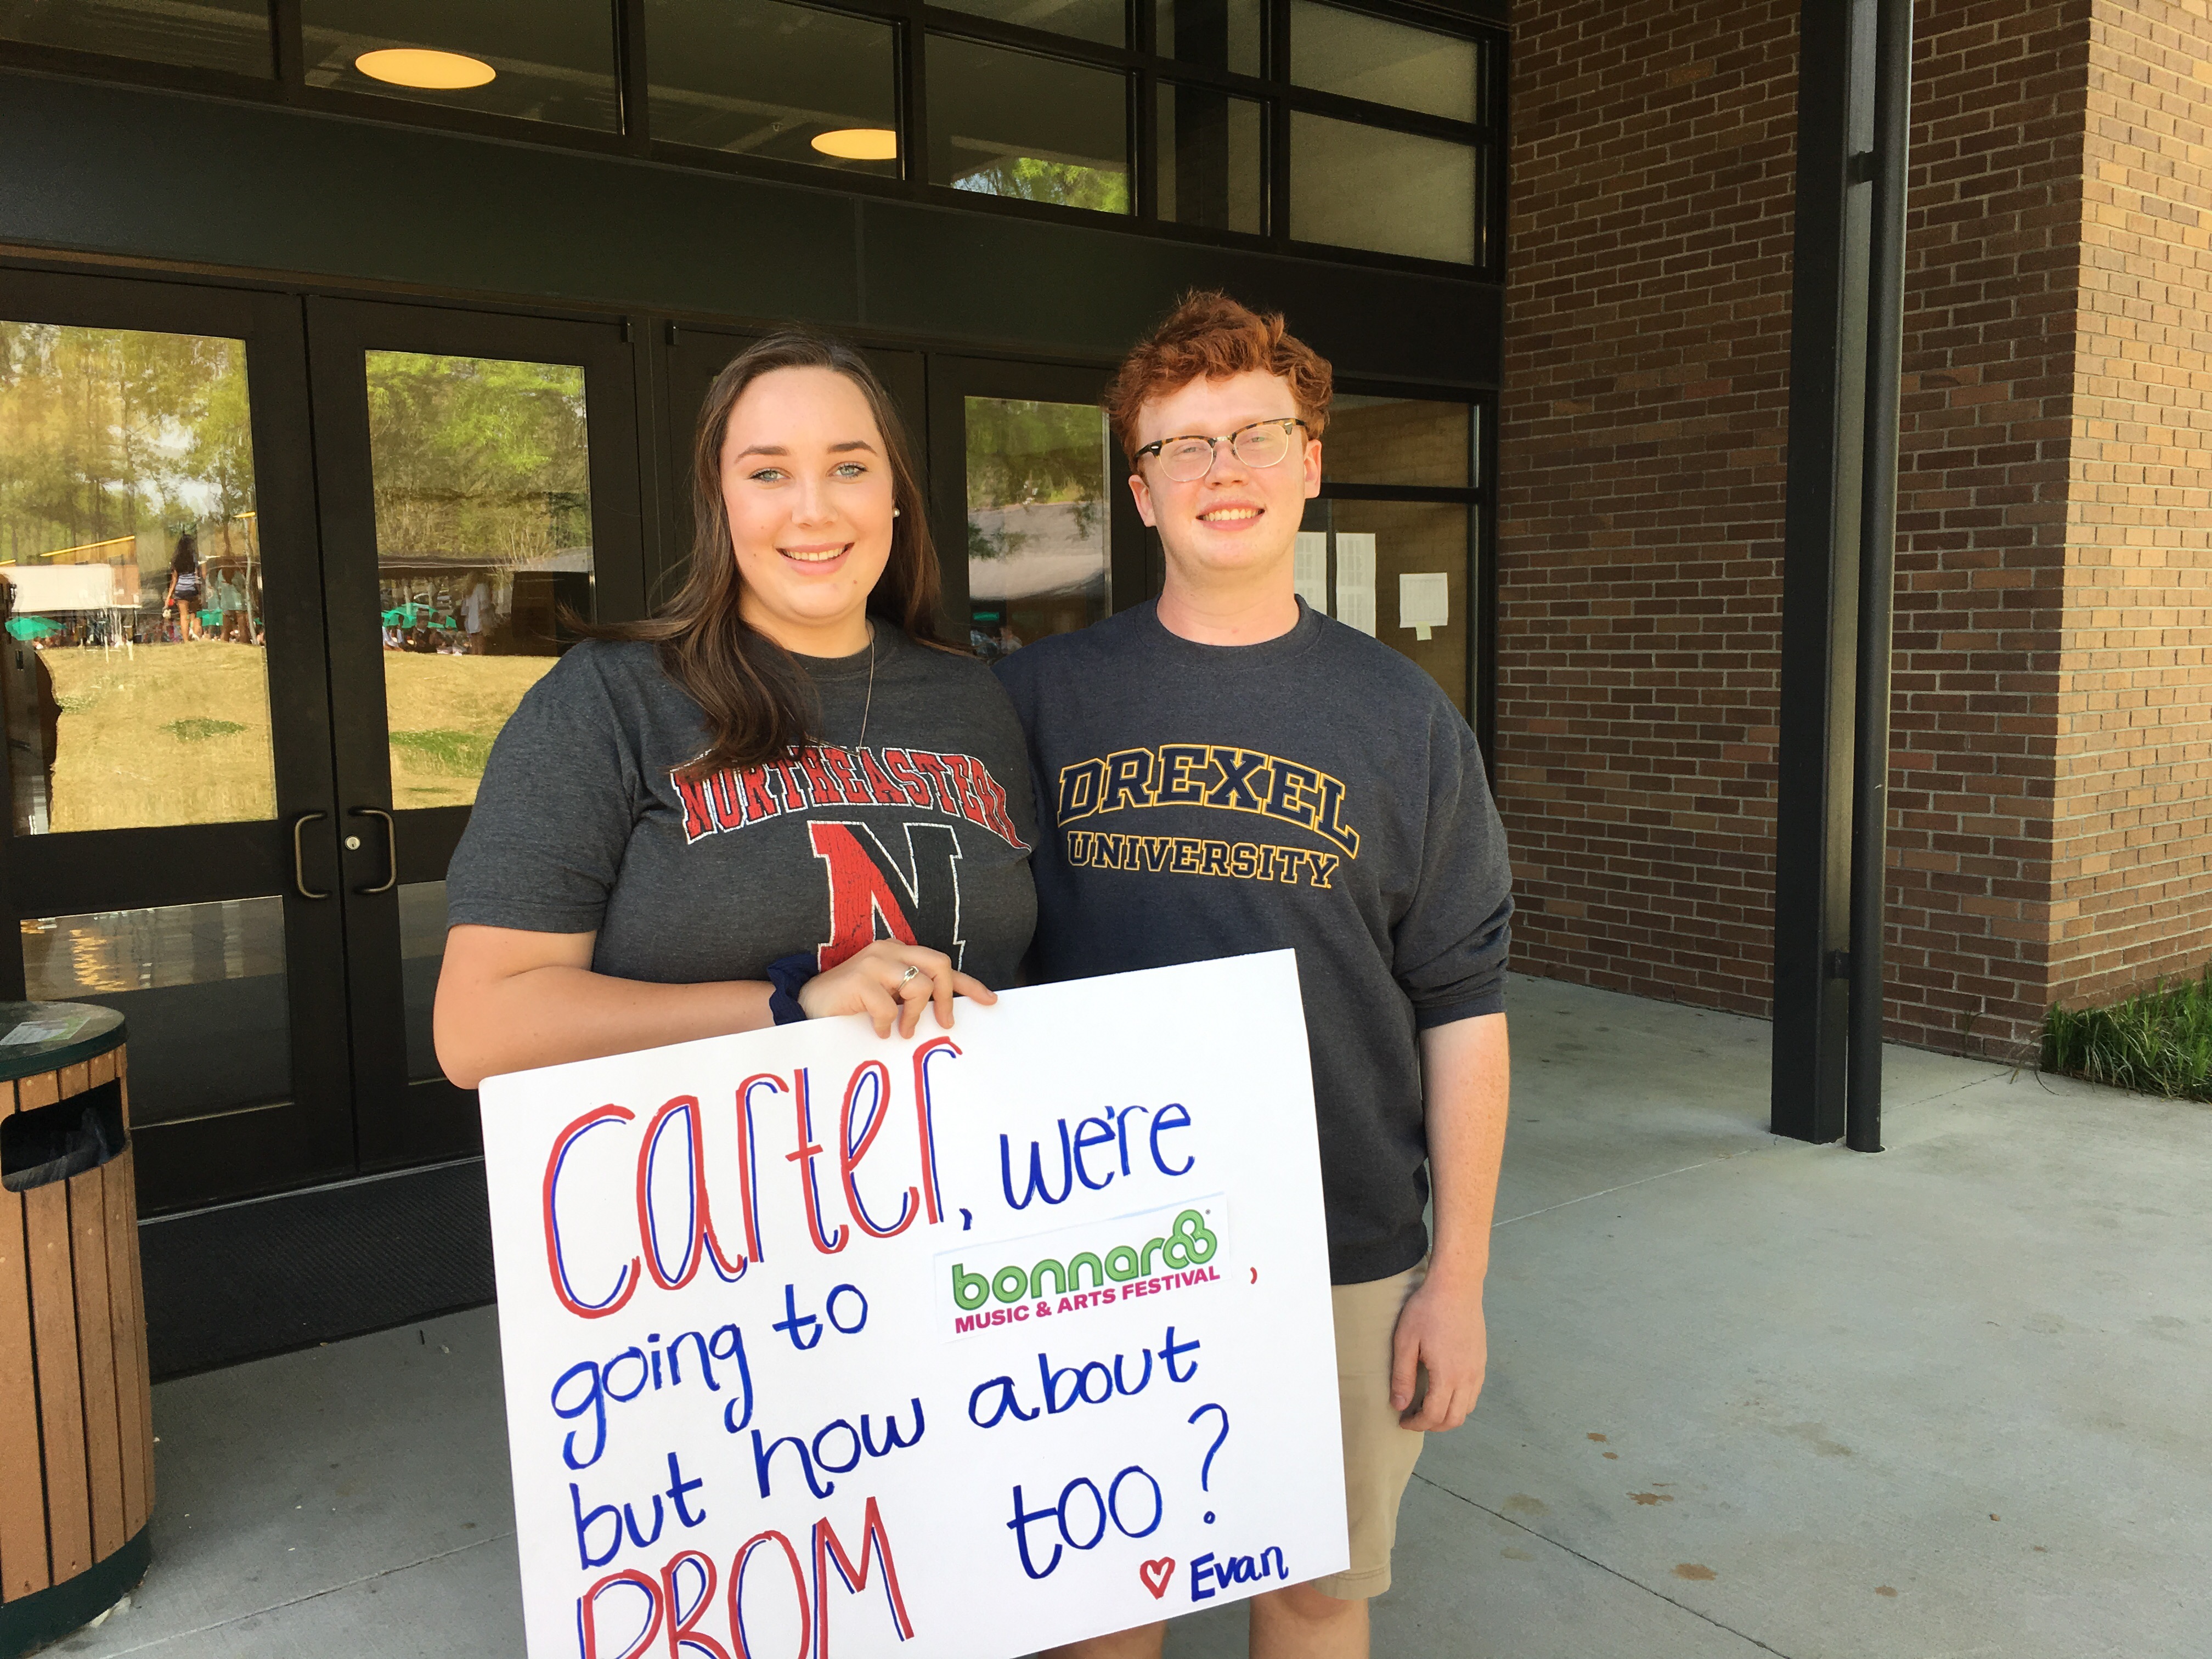 NORTHEASTERN
N
DREXEL
UNIVERSITY
Carter, we're
going to bonnaroo
MUSIC & ARTS FESTIVAL ,
but how about
PROM too?
♥ Evan